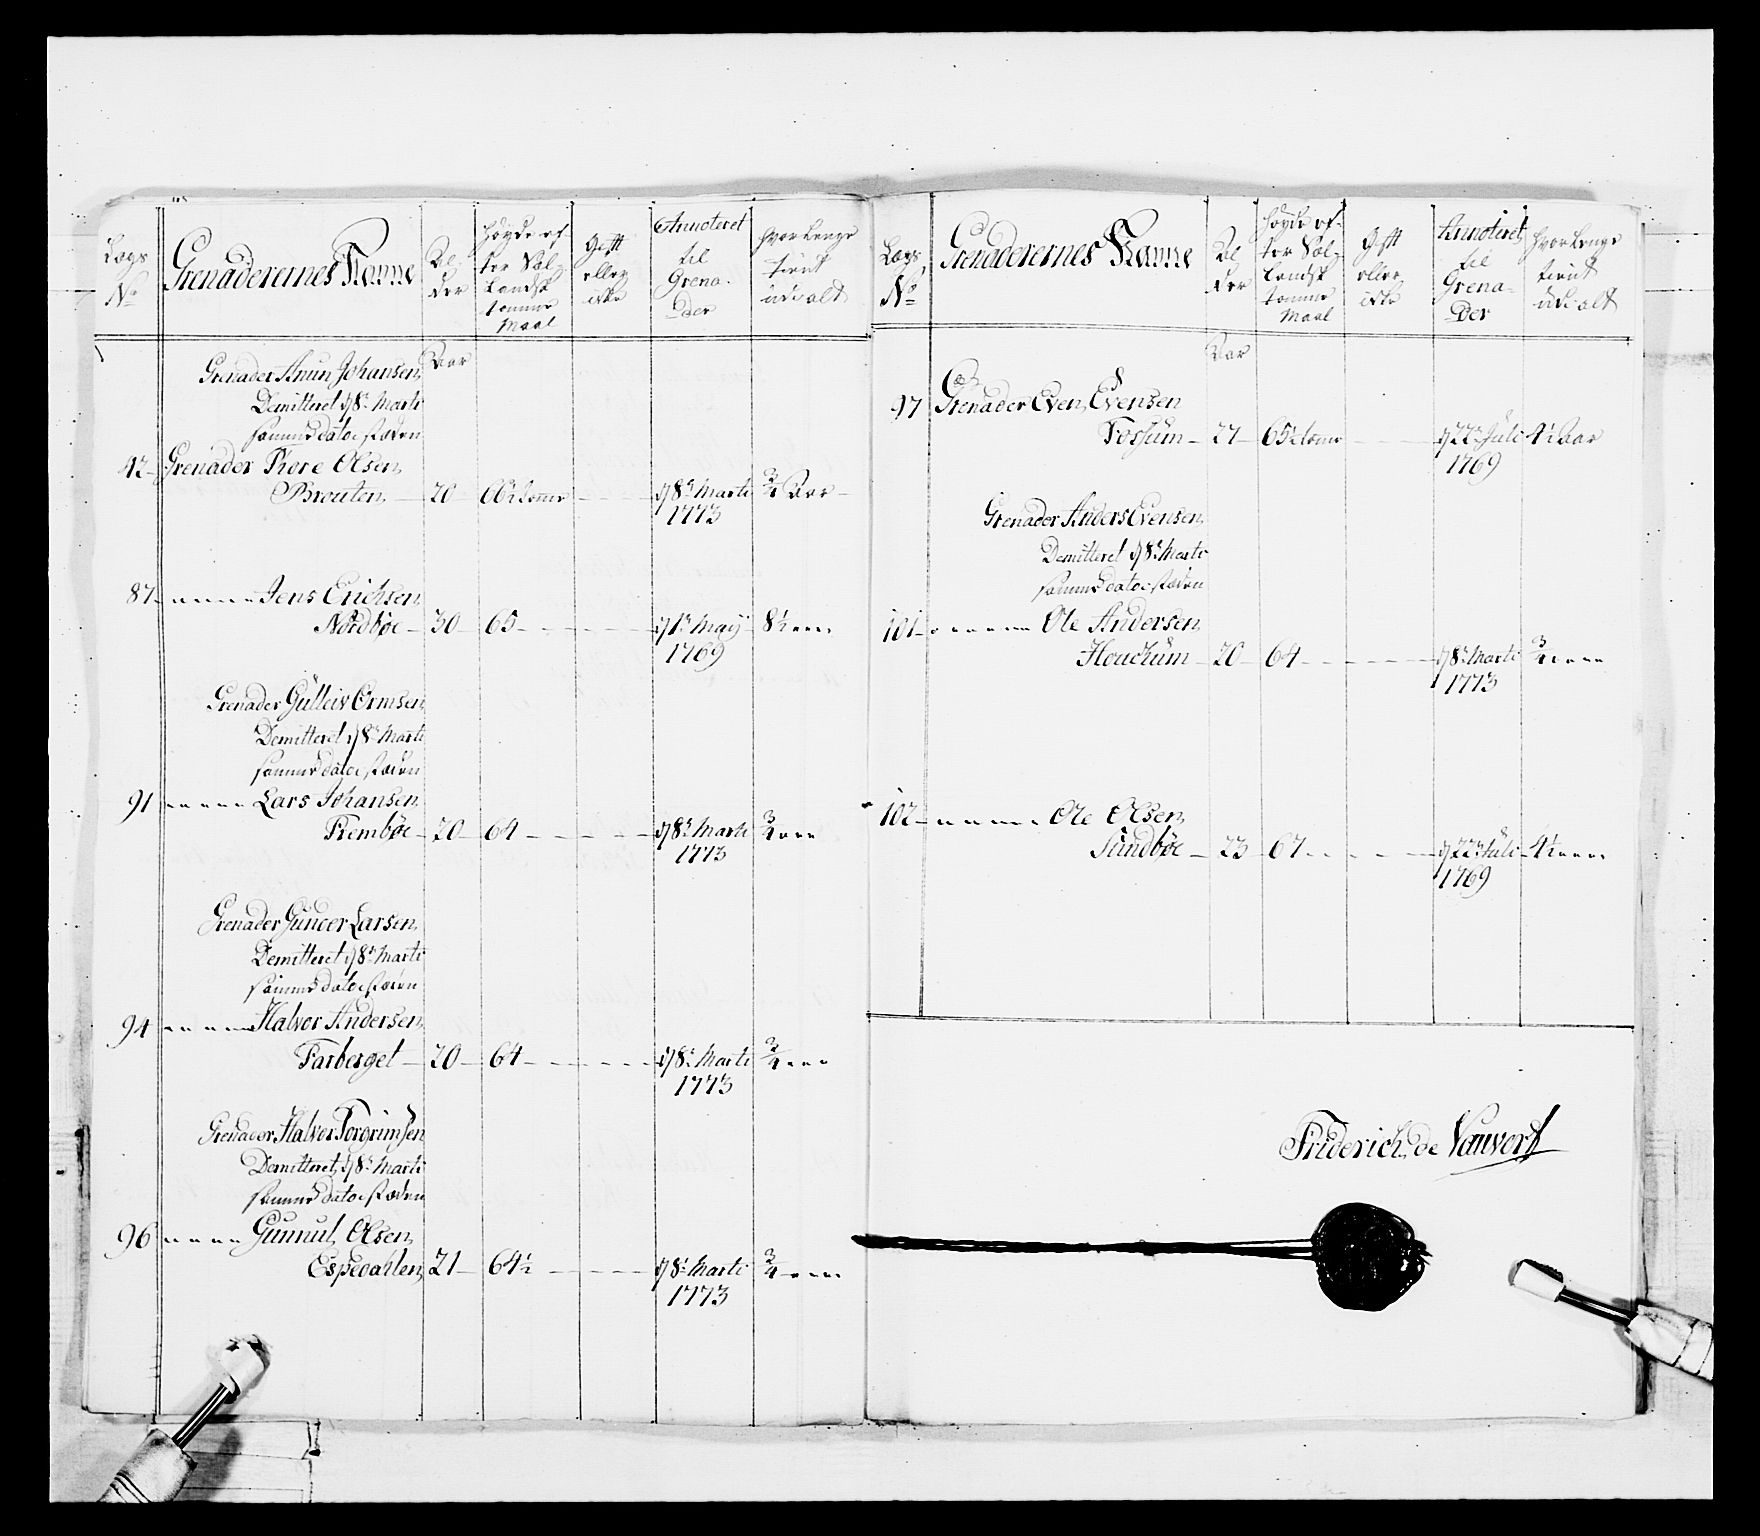 Lægs
No
Grenaderernes Nanne
Al-
der
Høyde ef-
ter Siæl-
landsk
tomme
Maal
Gift
eller
ikke
Annoteret
til
Grena-
der
Hvor længe
tient
udi alt
Aar
Grenader Anun Johansen
Demitteret d 8de Marti
samme dato i stæden
42 Grenader Tore Olsen
Brouten 20 66½ tomme d 8de Marti ¾ Aar
1773
87 Jens Erichsen
Nordbøe 30 65 d 1te Maÿ 8½
1769
Grenader Gulleiv Ormsen
Demitteret d 8de Marti
samme dato i stæden
91 Lars Johansen
Trembøe 20 64 d 8de Marti ¾
1773
Grenader Gunder Larsen
Demitteret d 8de Marti
samme dato i stæden
94 Halvor Andersen
Farberget 20 64 d 8de Marti ¾
1773
Grenader Halvor Torgrimsen
Demitteret d 8de Marti
samme dato i stæden
96 Gunnul Olsen
Espedahlen 21 64½ d 8de Marti ¾
1773
Lægs
No
Grenaderernes Nanne
Al
der
Høyde ef-
ter Siæl-
landsk
tomme
Maal
Gift
eller
ikke
Annoteret
til
Grena-
der
Hvor længe
tient
udi alt
Aar
97 Grenader Even Evensen
Fossum 27 65½ tome d 22de Juli 4½ Aar
1769
Grenader Anders Evensen
Demitteret d 8de Marti
samme dato i stæden
101 Ole Andersen
Houchum 20 64 d 8de Marti ¾
1773
102 Ole Olsen
Sundbøe 23 67 d 22de Juli 4½
1769
Friderich de Vauvert